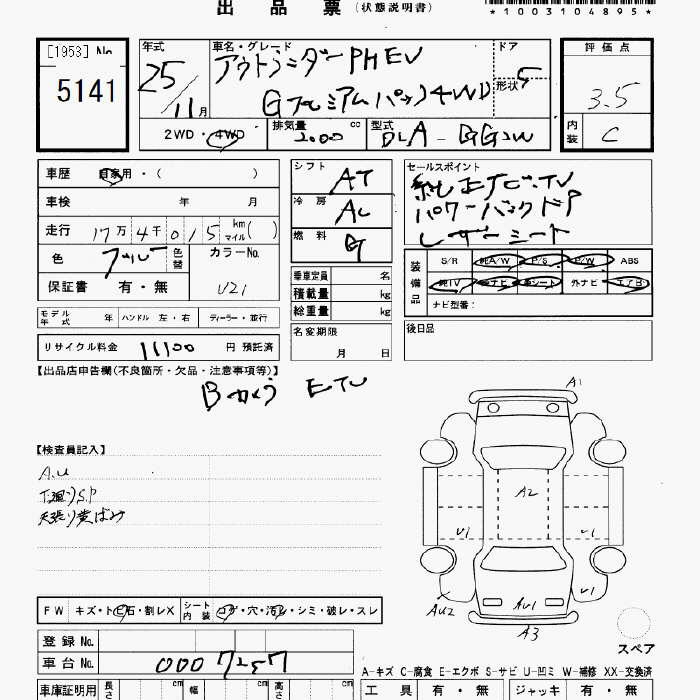 出 品 票 (状態説明書)
*1003104895*
[1953] No. 5141
年式 25/11月
車名・グレード アウトランダーPHEV
Gプレミアムパック4WD
ドア 5
形状
評価点 3.5
内装 C
2WD・4WD 排気量 2000 cc 型式 DLA-GG2W
車歴 自家用・( )
車検 年 月
走行 17万4千015 km マイル( )
色 ブルー 色替 カラーNo. U21
保証書 有・無
シフト AT
冷房 AC
燃料 G
乗車定員 名
積載量 kg
総重量 kg
セールスポイント
純正ナビ.TV
パワーバックドア
レザーシート
装備品 S/R 純A/W P/S P/W ABS
純TV 純ナビ 革シート 外ナビ エアB
ナビ型番:
モデル年式 年 ハンドル 左・右 ディーラー・並行
名変期限 月 日
後日品
リサイクル料金 11100 円 預託済
【出品店申告欄(不良箇所・欠品・注意事項等)】
Bカメラ ETC
【検査員記入】
A.U
下廻りS.P
天張り黄ばみ
A1
A2
U1
U1
AU2
AU1
U1
A3
スペア
FW キズ・トビ石・割レX シート内装 コゲ・穴・汚レ・シミ・破レ・スレ
登録 No.
車台 No. 0007257
A-キズ C-腐食 E-エクボ S-サビ U-凹ミ W-補修 XX-交換済
車庫証明用 長さ cm 幅 cm 高さ cm
工具 有・無 ジャッキ 有・無